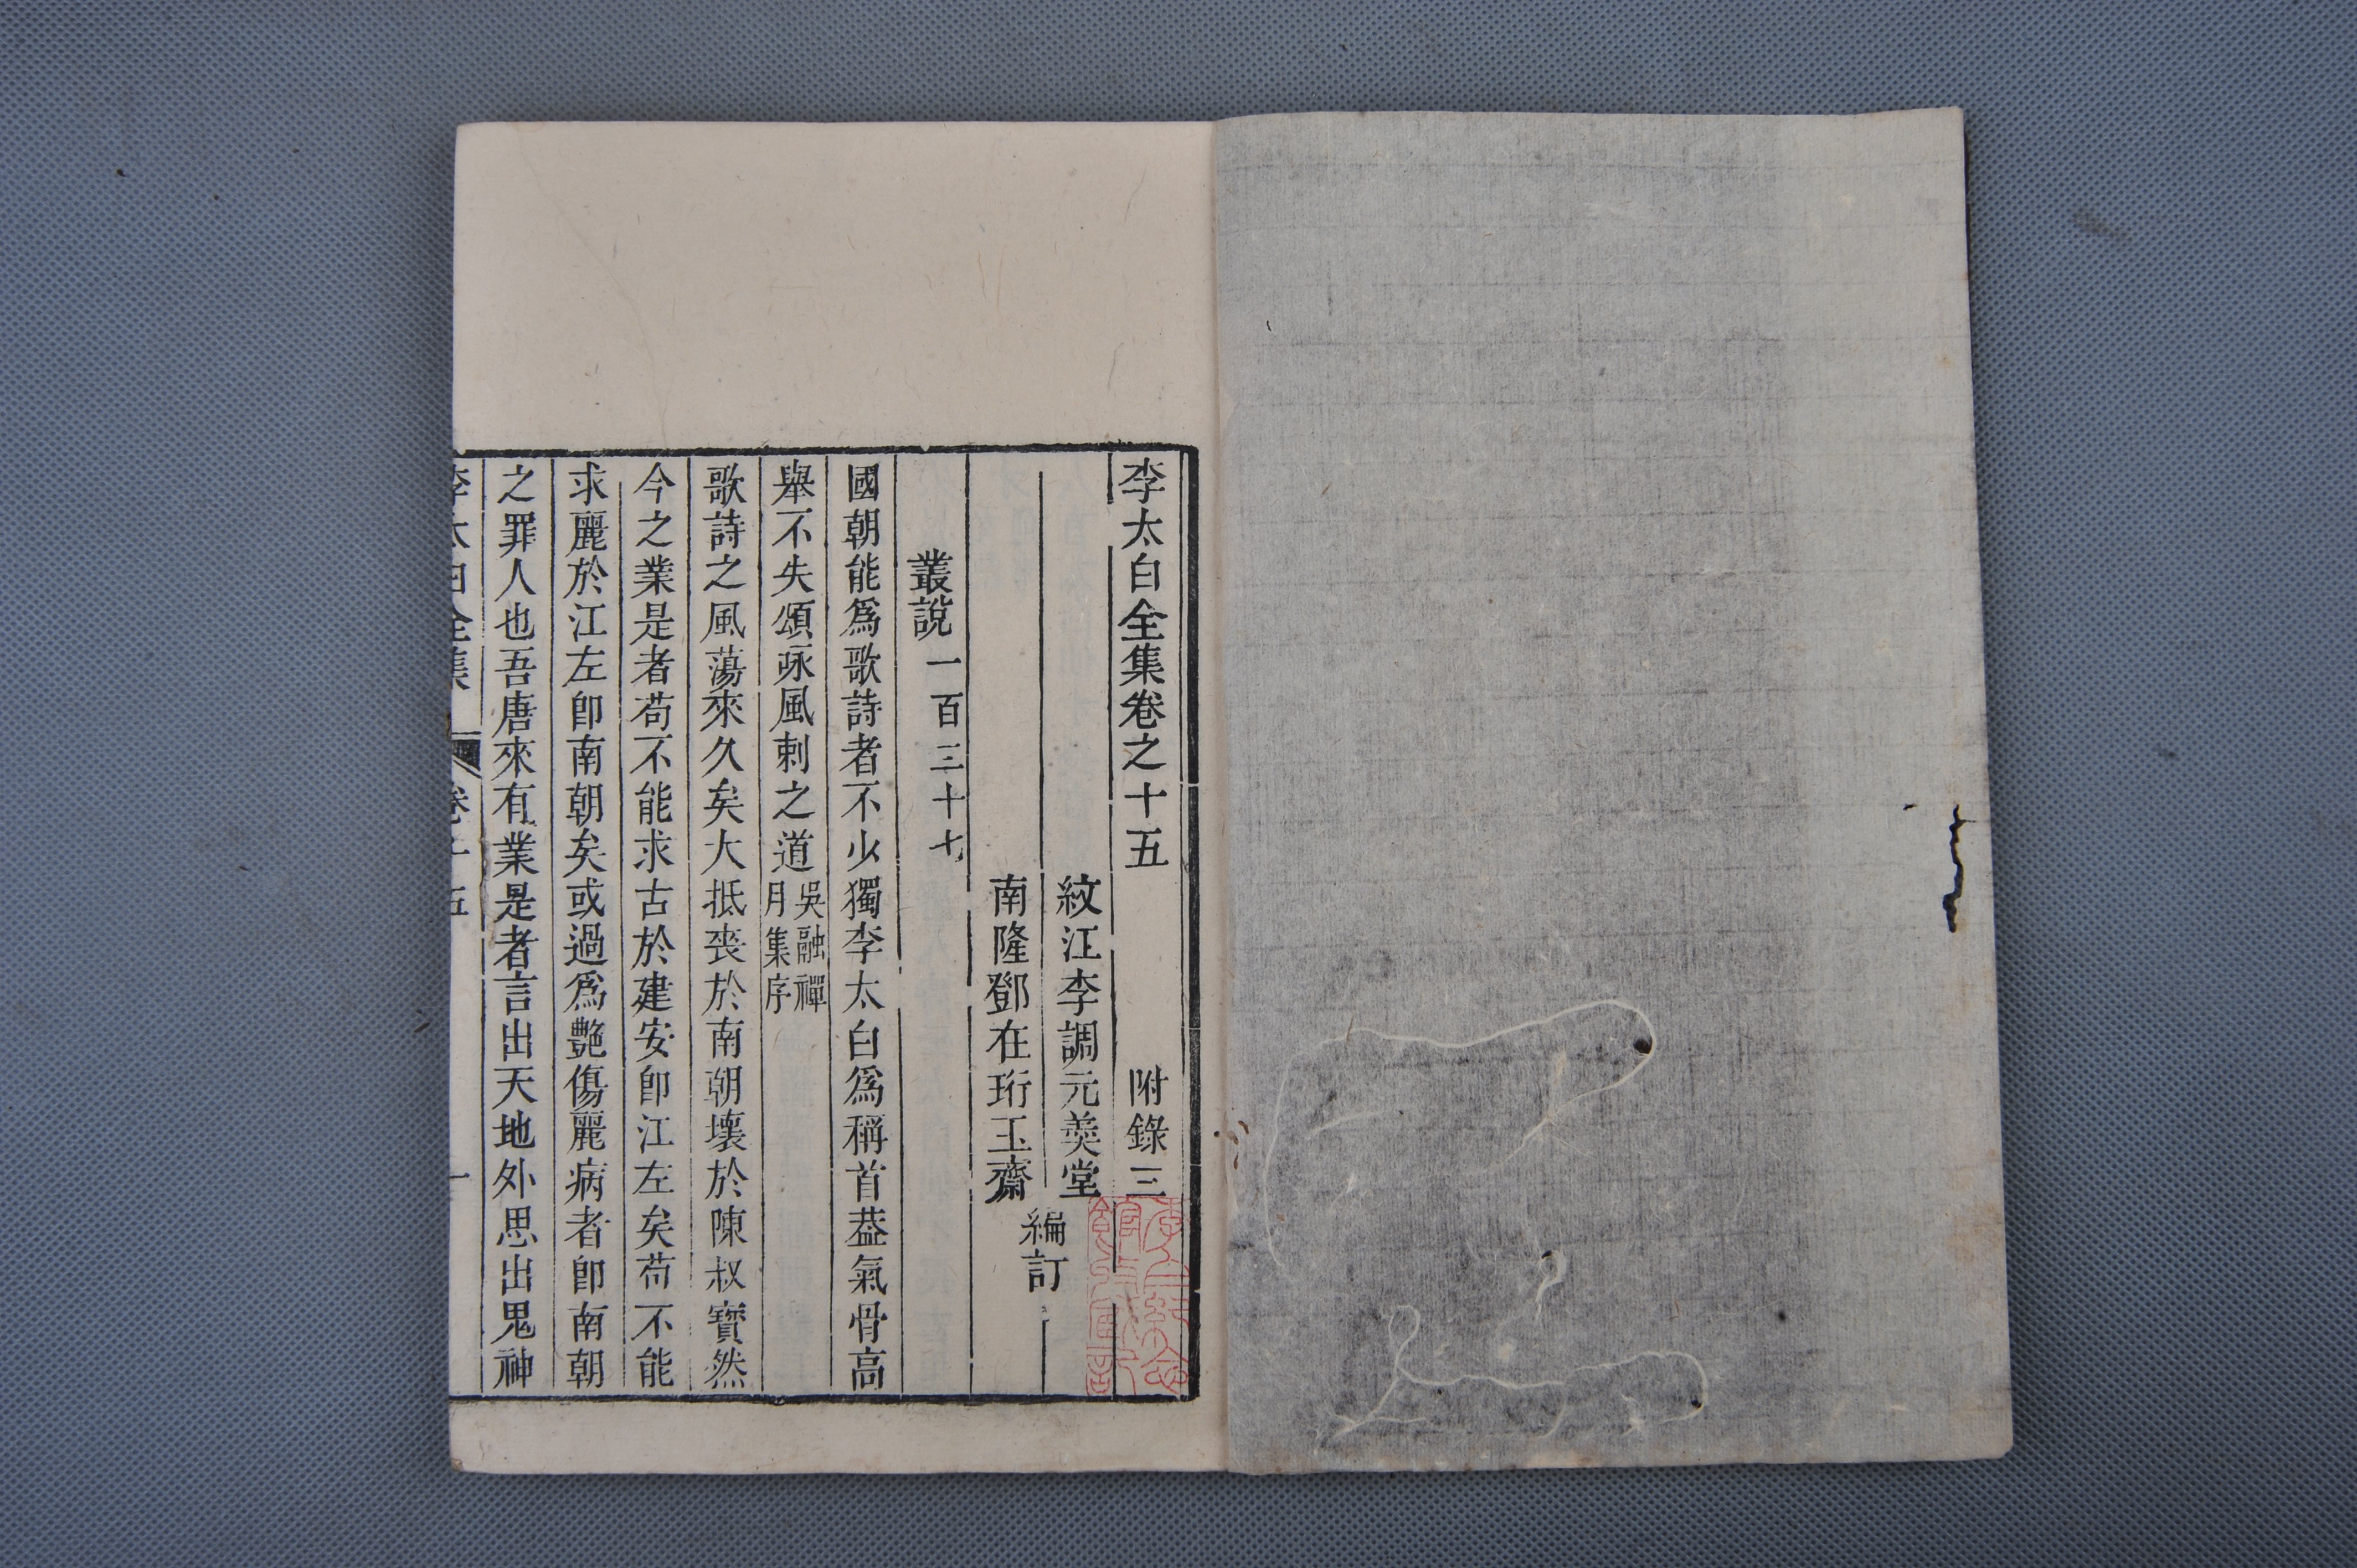 李太白全集卷之十五　附錄三
紋江李調元羮堂
南隆鄧在珩玉齋
編訂
叢說一百三十七
國朝能爲歌詩者不少獨李太白爲稱首葢氣骨高
舉不失頌詠風刺之道吳融禪月集序
歌詩之風蕩來久矣大抵喪於南朝壞於陳叔寶然
今之業是者苟不能求古於建安卽江左矣苟不能
求麗於江左卽南朝矣或過爲艷傷麗病者卽南朝
之罪人也吾唐來有業是者言出天地外思出鬼神
李太白全集　卷十五　一